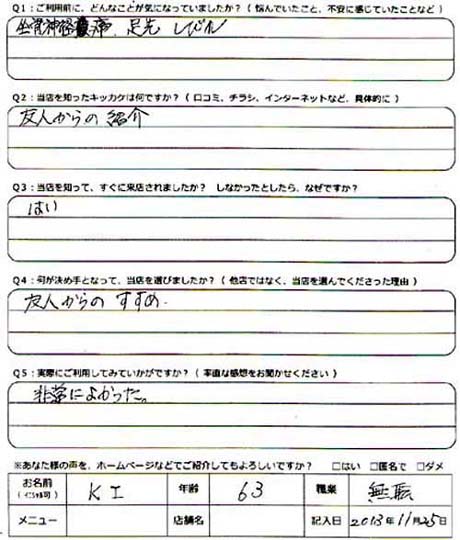 Q1：ご利用前に、どんなことが気になっていましたか？（悩んでいたこと、不安に感じていたことなど）
坐骨神経痛、足先 しびれ
Q2：当店を知ったキッカケは何ですか？（口コミ、チラシ、インターネットなど、具体的に）
友人からの紹介
Q3：当店を知って、すぐに来店されましたか？ しなかったとしたら、なぜですか？
はい
Q4：何が決め手となって、当店を選びましたか？（他店ではなく、当店を選んでくださった理由）
友人からの すすめ.
Q5：実際にご利用してみていかがですか？（率直な感想をお聞かせください）
非常によかった。
※あなた様の声を、ホームページなどでご紹介してもよろしいですか？ □はい □匿名で □ダメ
お名前（イニシャル可） K I 年齢 63 職業 無職
メニュー 店舗名 記入日 2013年11月25日